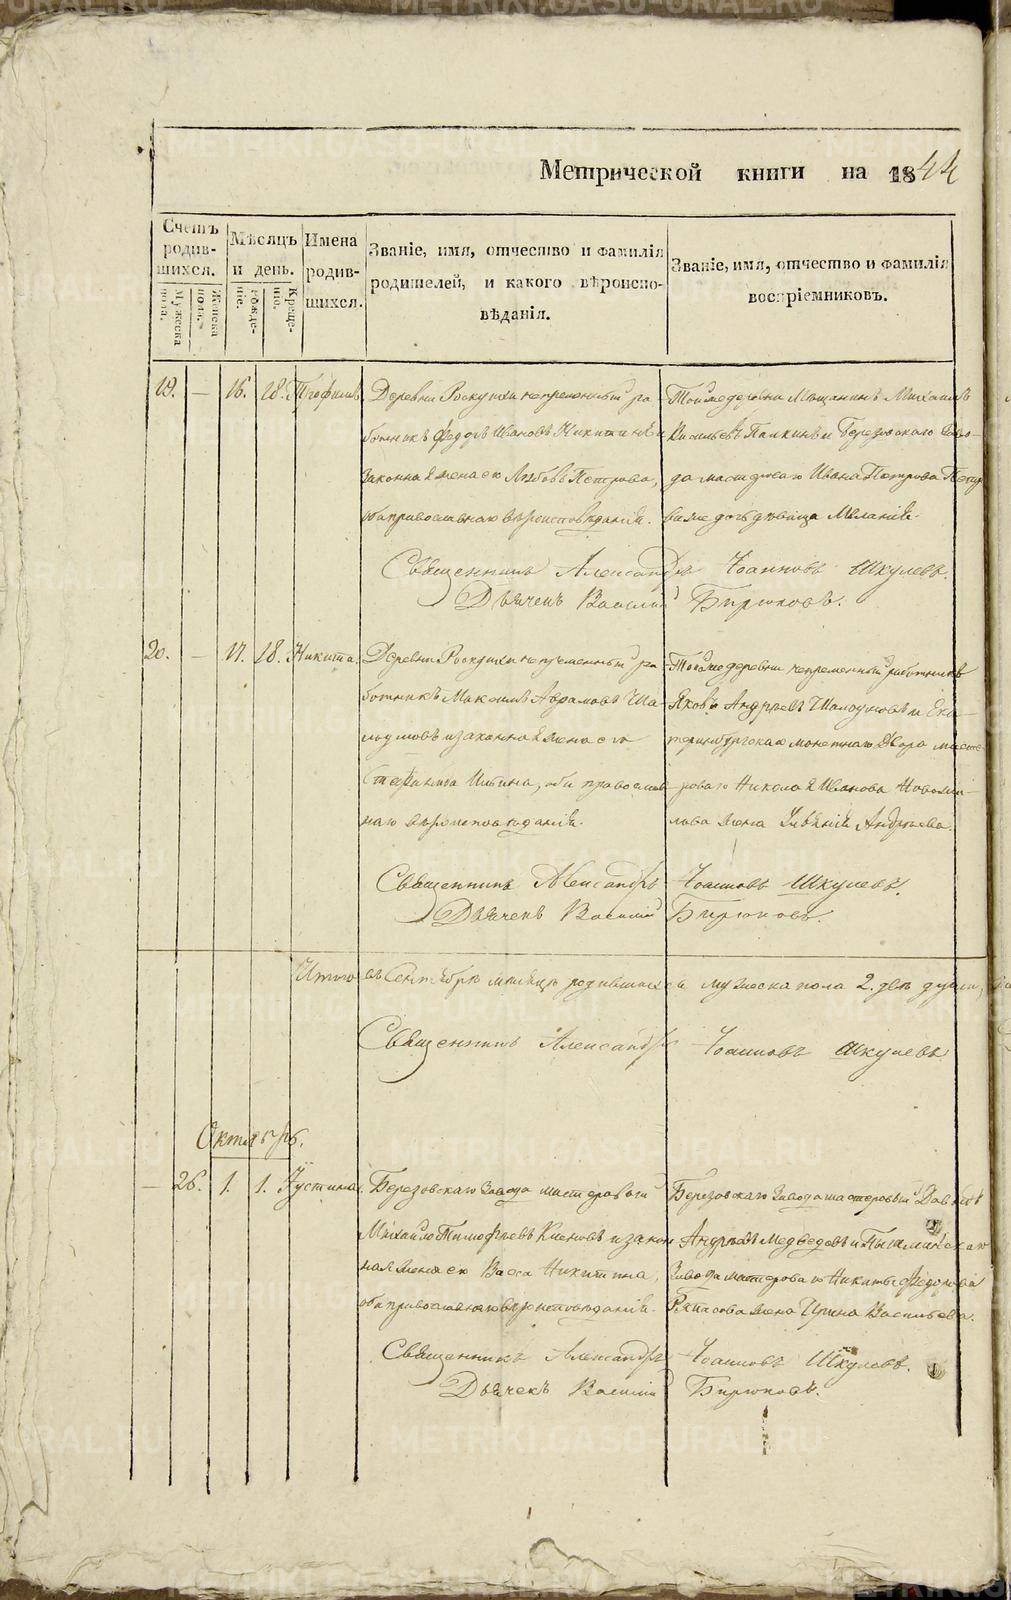 Метрической книги на 1844
Счетъ родив-шихся.
Мужеска пола.
Женска пола.
Мѣсяцъ и день.
Рожде-ніе.
Креще-нію.
Имена родив-шихся.
Званіе, имя, отчество и фамилія
родителей, и какого вѣроиспо-
вѣданія.
Званіе, имя, отчество и фамилія
воспріемниковъ.
19. — 16. 18. Трофимъ
Деревни непременный ра
ботникъ Федоръ Ивановъ Никитинъ и
законная жена его Любовь Петрова,
оба православнаго вѣроисповѣданія.
Тойже деревни Мещанинъ Михаилъ
Васильевъ Палкинъ и Березовскаго Заво-
да мастероваго Ивана Петрова
дочь дѣвица Меланія.
Священникъ Александръ Іоанновъ Шкулевъ.
Дьячекъ Василій Бирюковъ.
20. — 17. 18. Никита
Деревни непременный ра
ботникъ Максимъ Аврамовъ Ша-
и законная жена его
Ильина, оба православ
наго вѣроисповѣданія.
Тойже деревни непременный работникъ
Яковъ Андреевъ и Ека-
теринбургскаго монетнаго Двора масте-
роваго Николая Иванова
жена Андреева.
Священникъ Александръ Іоанновъ Шкулевъ.
Дьячекъ Василій Бирюковъ.
Итого въ Сентябрѣ мѣсяцѣ родившихся мужеска пола 2. двѣ души,
Священникъ Александръ Іоанновъ Шкулевъ
Октябрь.
— 26. 1. 1. Іустина
Березовскаго Завода мастеровой
Михайло Тимофеевъ и закон
ная жена его Васса Никитина,
оба православнаго вѣроисповѣданія.
Березовскаго Завода мастеровый Давыдъ
Андреевъ Медведевъ и Пышминскаго
Завода мастероваго Никиты Федорова
жена Ирина Васильева.
Священникъ Александръ Іоанновъ Шкулевъ.
Дьячекъ Василій Бирюковъ.
METRIKI.GASO-URAL.RU